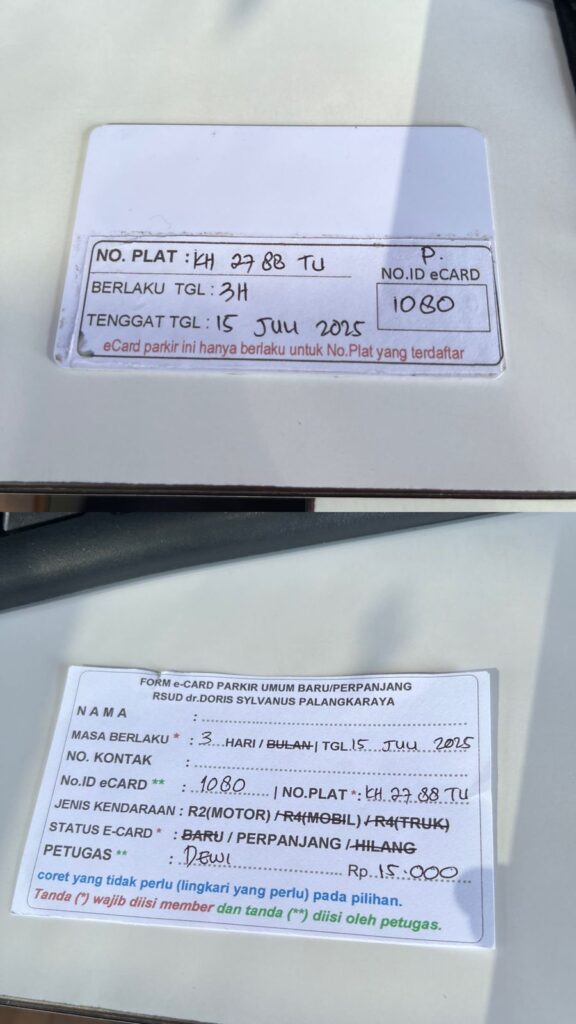 NO. PLAT : KH 2788 TU
P.
NO.ID eCARD
BERLAKU TGL : 3H
1080
TENGGAT TGL : 15 JULI 2025
eCard parkir ini hanya berlaku untuk No.Plat yang terdaftar
FORM e-CARD PARKIR UMUM BARU/PERPANJANG
RSUD dr.DORIS SYLVANUS PALANGKARAYA
NAMA :
MASA BERLAKU * : 3 HARI / BULAN | TGL 15 JULI 2025
NO. KONTAK :
No.ID eCARD ** : 1080 | NO.PLAT *: KH 2788 TU
JENIS KENDARAAN : R2(MOTOR) / R4(MOBIL) / R4(TRUK)
STATUS E-CARD * : BARU / PERPANJANG / HILANG
PETUGAS ** : DEWI Rp 15.000
coret yang tidak perlu (lingkari yang perlu) pada pilihan.
Tanda (*) wajib diisi member dan tanda (**) diisi oleh petugas.